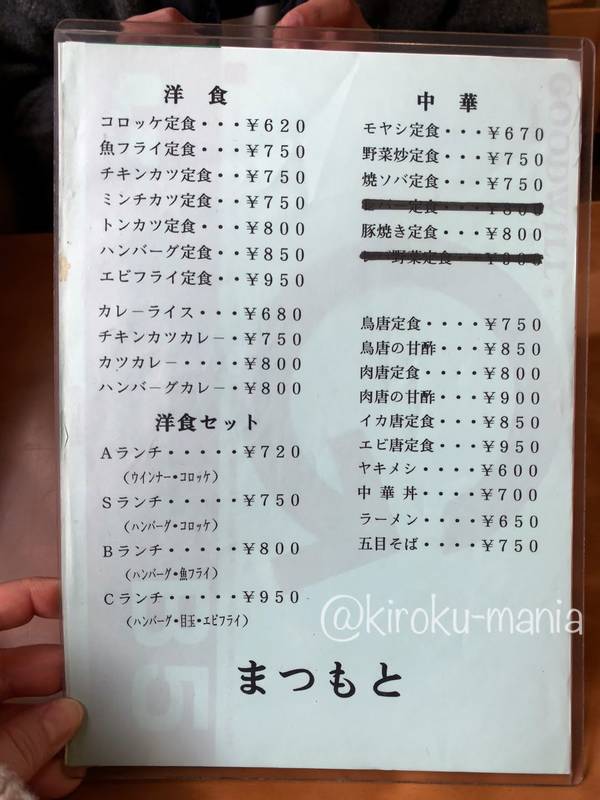 洋食
コロッケ定食・・・￥620
魚フライ定食・・・￥750
チキンカツ定食・・￥750
ミンチカツ定食・・￥750
トンカツ定食・・・￥800
ハンバーグ定食・・￥850
エビフライ定食・・￥950
カレーライス・・・￥680
チキンカツカレー・￥750
カツカレー・・・・￥800
ハンバーグカレー・￥800
洋食セット
Aランチ・・・・・￥720
（ウインナー・コロッケ）
Sランチ・・・・・￥750
（ハンバーグ・コロッケ）
Bランチ・・・・・￥800
（ハンバーグ・魚フライ）
Cランチ・・・・・￥950
（ハンバーグ・目玉・エビフライ）
中華
モヤシ定食・・・￥670
野菜炒定食・・・￥750
焼ソバ定食・・・￥750
豚焼き定食・・・￥800
野菜定食
鳥唐定食・・・・￥750
鳥唐の甘酢・・・￥850
肉唐定食・・・・￥800
肉唐の甘酢・・・￥900
イカ唐定食・・・￥850
エビ唐定食・・・￥950
ヤキメシ・・・・￥600
中華丼・・・・￥700
ラーメン・・・・￥650
五目そば・・・・￥750
まつもと
@kiroku-mania